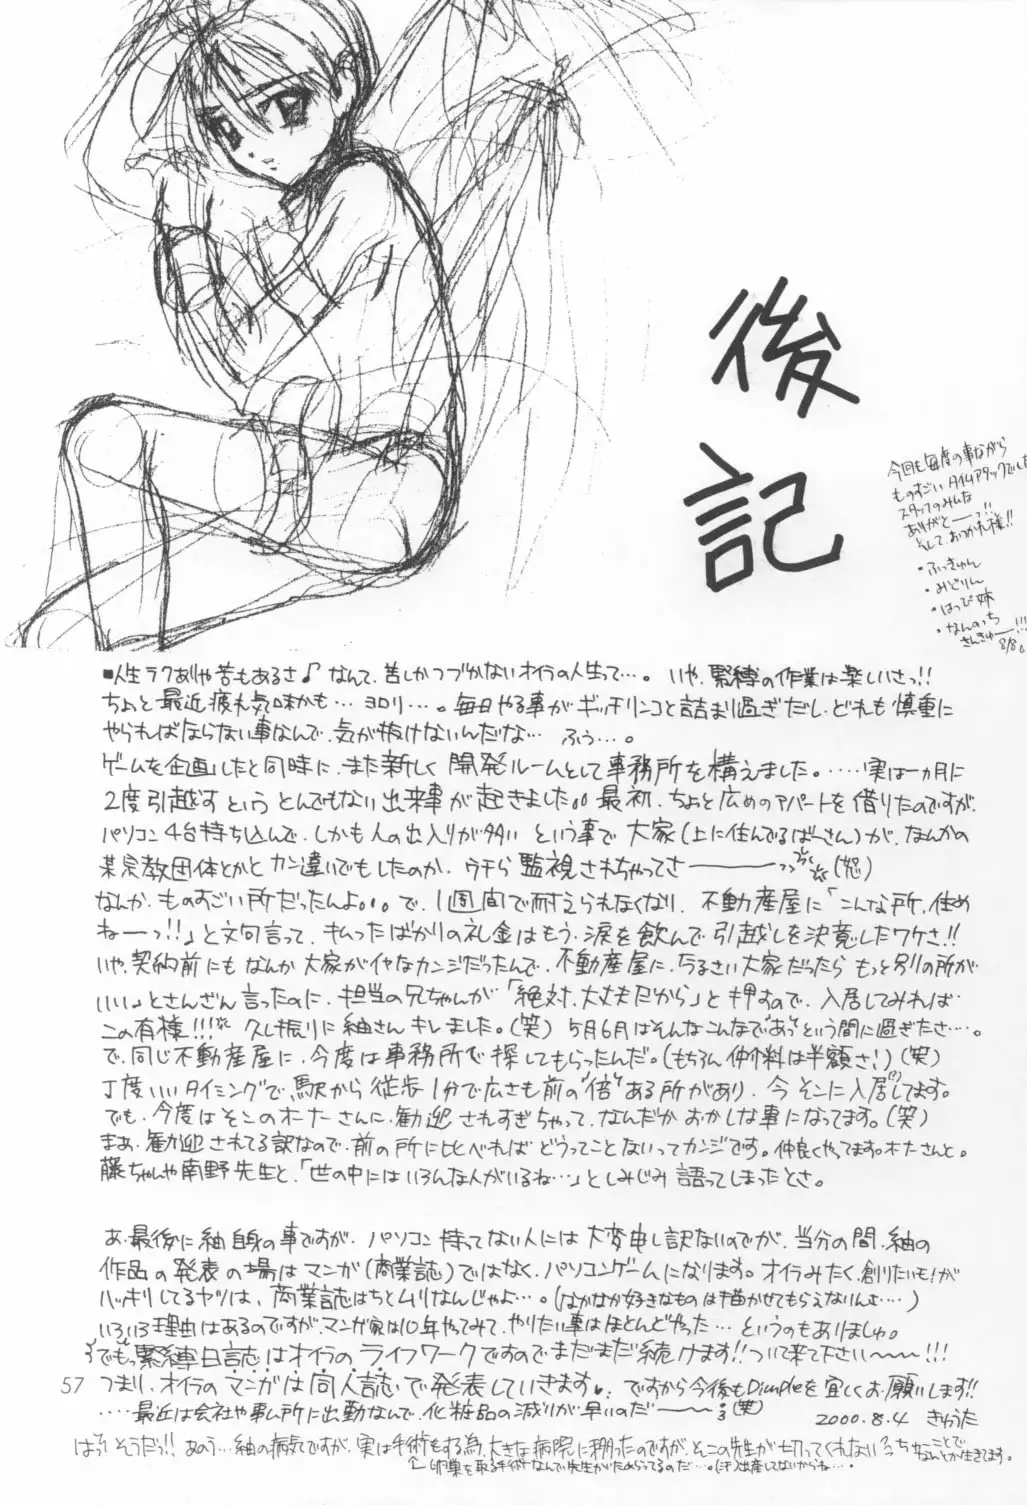 後記
今回も毎度の事ながら
ものすごいタイムアタックでした
スタッフのみんな
ありがとーーっ!!
そして、おつかれ様!!
・ふっきゅん
・みどりん
・はっぴ姉
・なんのっち
さんきゅー!!!
8/8。
■人生ラクありゃ苦もあるさ♪ なんて、苦しかつづかないオイラの人生って…。 いや、緊縛の作業は楽しいさっ!!
ちょっと最近疲れ気味かも…ヨロリ…。毎日やる事がギッチリンコと詰まり過ぎだし、どれも慎重に
やらればならない事なんで、気が抜けないんだな… ふぅ…。
ゲームを企画したと同時に、また新しく開発ルームとして事務所を構えました。……実は一ヵ月に
2度引越すというとんでもない出来事が起きました。。最初、ちょっと広めのアパートを借りたのですが、
パソコン4台持ち込んで、しかも人の出入りが多いという事で大家(上に住んでるばーさん)が、なんかの
某宗教団体とかとカン違いでもしたのか、ウチら監視されちゃってさーーーーっっ (怒)
なんか、ものすごい所だったんよ。。。で、1週間で耐えられなくなり、不動産屋に「こんな所、住め
ねーっ!!」と文句言って、払ったばかりの礼金はもう、涙を飲んで引越しを決意したワケさ!!
いや、契約前にもなんか大家がイヤなカンジだったんで、不動産屋に、うるさい大家だったらもっと別の所が
いい。とさんざん言ったのに、担当の兄ちゃんが「絶対、大丈夫だから」と押すので、入居してみれば…
この有様!!! 久し振りに紬さんキレました。(笑) 5月6月はそんなこんなであっという間に過ぎたさ…。
で、同じ不動産屋に、今度は事務所で探してもらったんだ。(もちろん仲介料は半額さ!)(笑)
丁度いいタイミングで、駅から徒歩1分で広さも前の"倍"ある所があり、今そこに入居してます。
でも、今度はそこのオーナーさんに、歓迎されすぎちゃって、なんだかおかしな事になってます。(笑)
まあ、歓迎されてる訳なので、前の所に比べればどうってことないってカンジです。仲良くやってます。オーナーさんと。
藤ちゃんや南野先生と、「世の中にはいろんな人がいるね…」としみじみ語ってしまったとさ。
あ、最後に紬自身の事ですが、パソコン持ってない人には大変申し訳ないのですが、当分の間、紬の
作品の発表の場はマンガ(商業誌)ではなく、パソコンゲームになります。オイラみたく、創りたいもんが
ハッキリしてるヤツは、商業誌はちとムリなんじゃよ…。(なかなか好きなものは描かせてもらえないんむ…)
いろいろ理由はあるのですが、マンガ家は10年やってみて、やりたい事はほとんどやった…というのもありましゅ。
でもっ緊縛日誌はオイラのライフワークですのでまだまだ続けます!!ついて来て下さい〜〜〜!!!
57
つまり、オイラのマンガは同人誌で発表していきます。ですから今後もDimpleを宜しくお願いします!!
‥‥最近は会社や事ム所に出勤なんで、化粧品の減りが早いのだーー〜。(笑)
2000.8.4 きゅうた
はっ!そうだっ!! あのう…紬の病気ですが、実は手術をする為、大きな病院に移ったのですが、そこの先生が切ってくれないっちゅーことで
なんとか生きてます。
↑卵巣を取る手術なんで先生がためらってるのだ…。